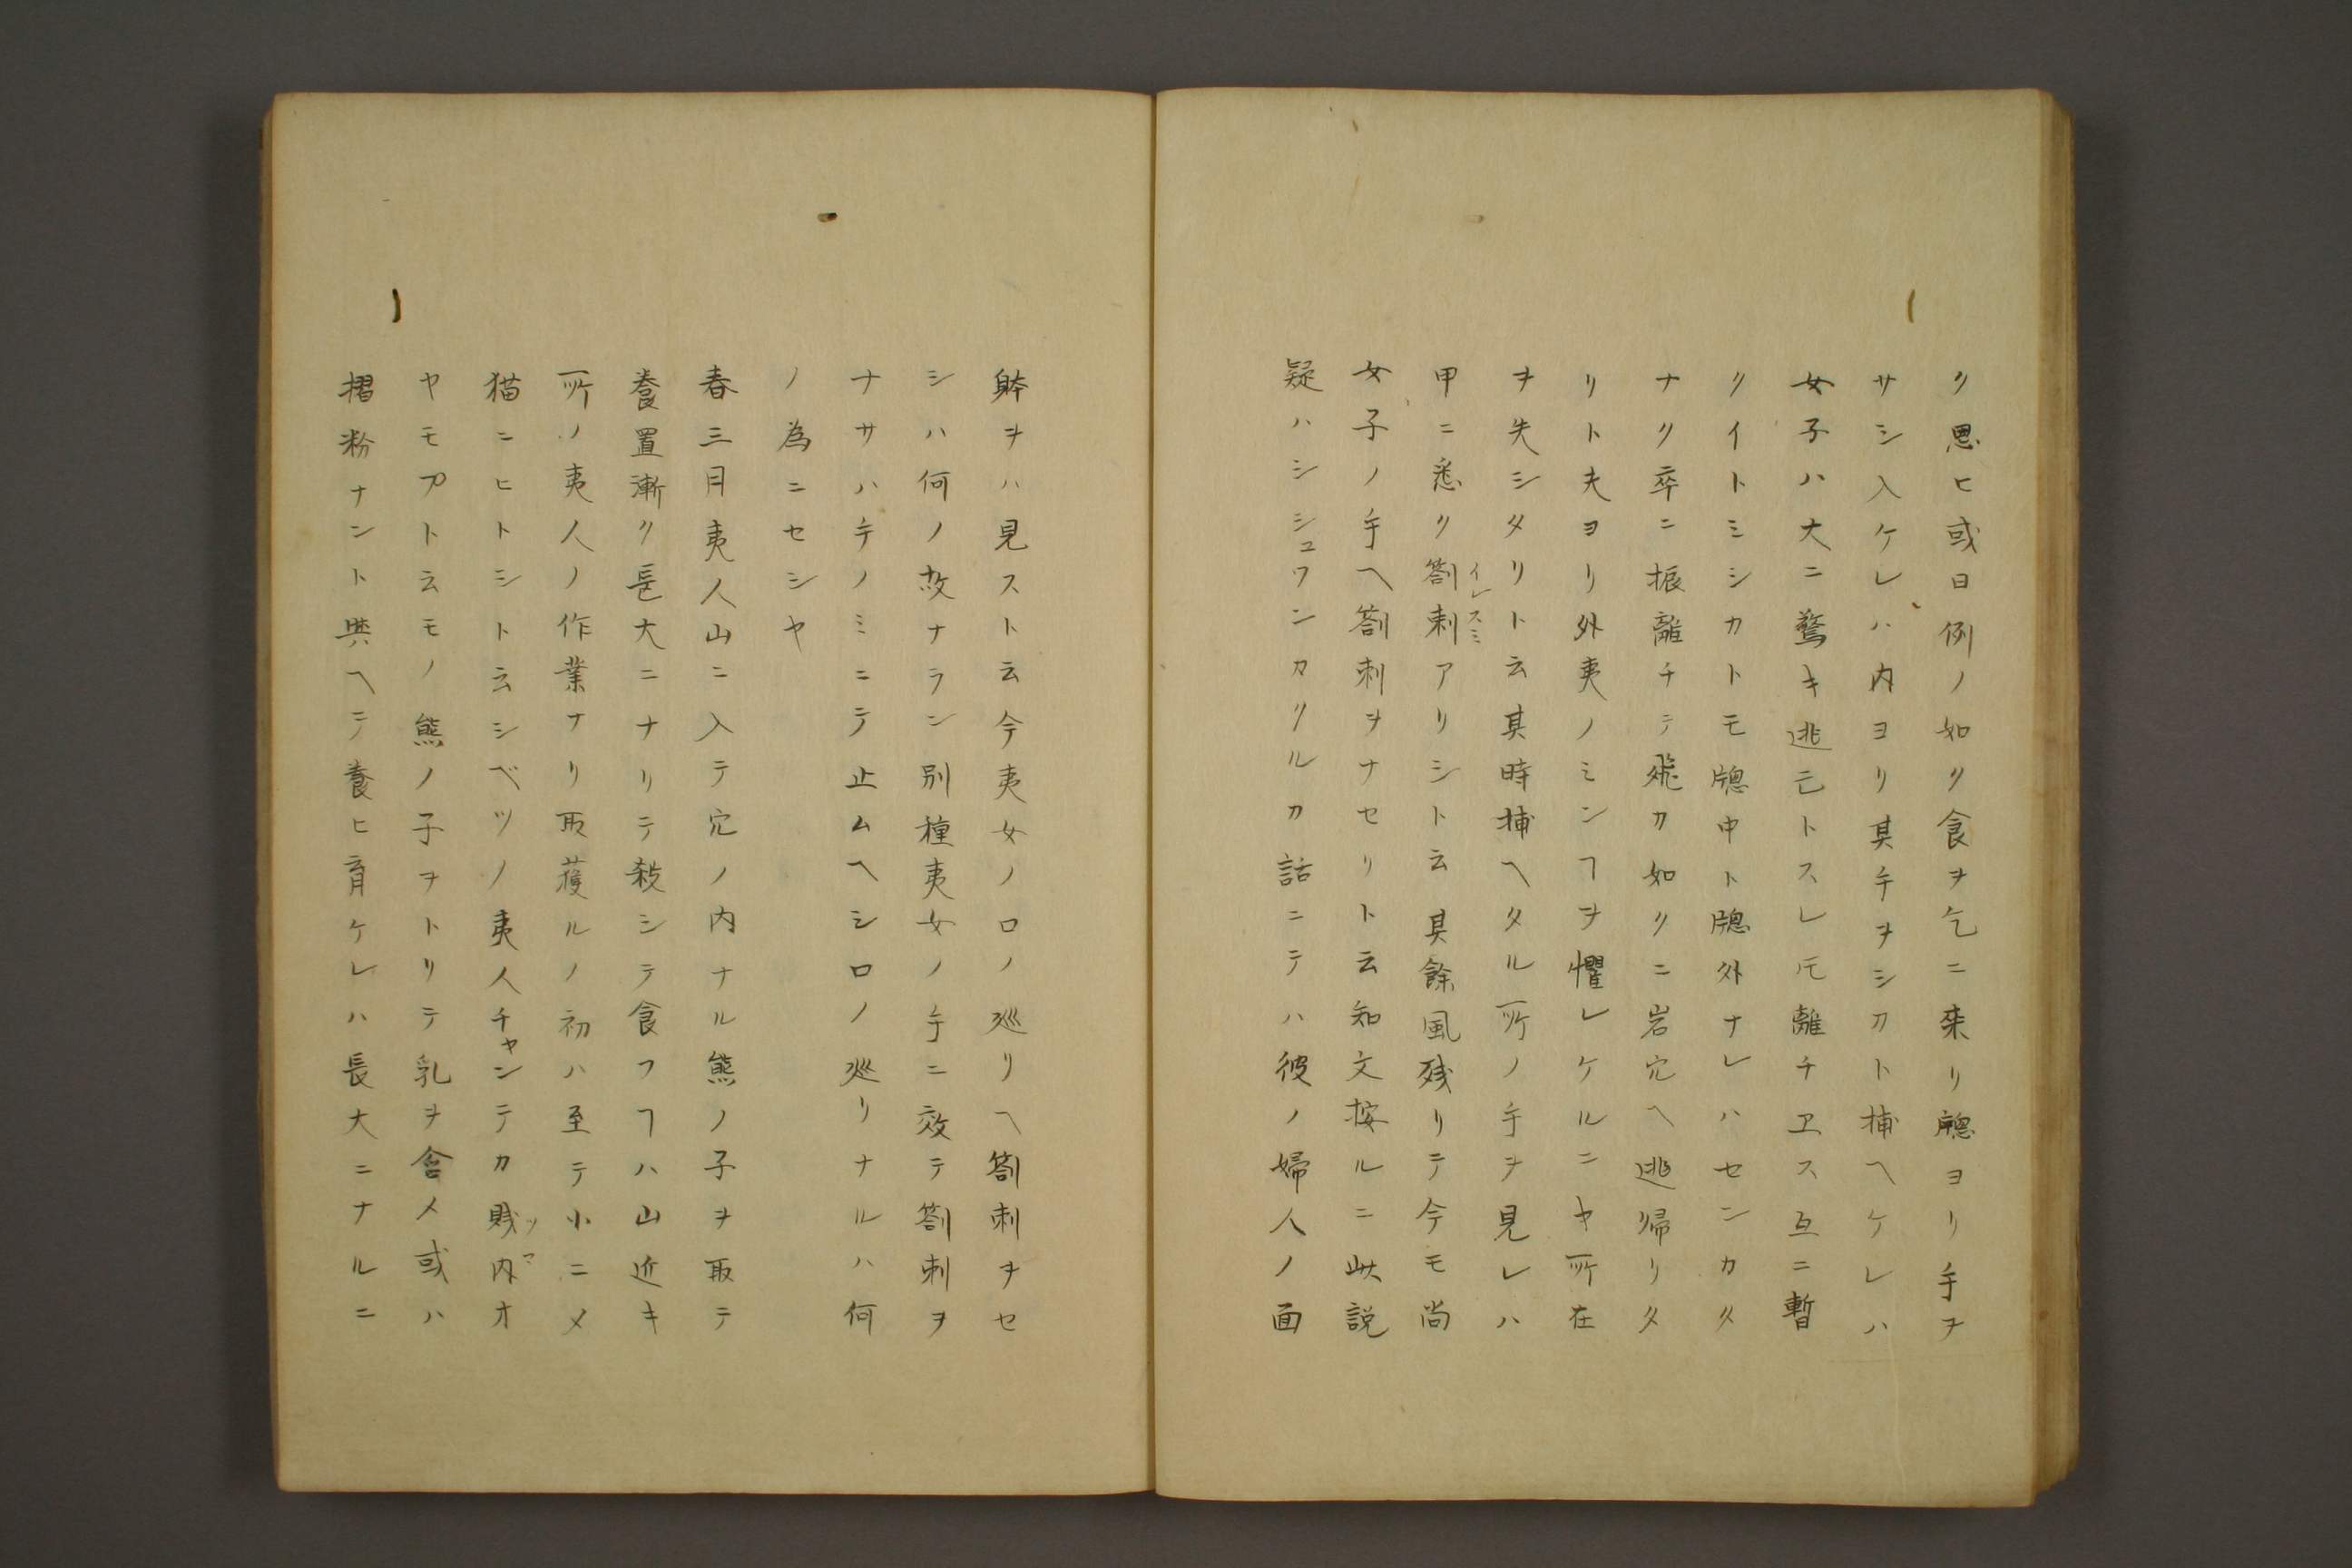 ク思ヒ或日例ノ如ク食ヲ乞ニ来リ牕ヨリ手ヲ
サシ入ケレハ内ヨリ其手ヲシカト捕ヘケレハ
女子ハ大ニ驚キ逃亡トスレ𪜈離チヱス互ニ暫
クイトミシカトモ牕中ト牕外ナレハセンカタ
ナク卒ニ振離チテ飛カ如クニ岩穴ヘ逃帰リタ
リト夫ヨリ外夷ノミンヿヲ懼レケルニヤ所在
ヲ失シタリト云其時捕ヘタル所ノ手ヲ見レハ
甲ニ悉ク劄刺アリシト云其餘風残リテ今モ尚
イレスミ
女子ノ手ヘ劄刺ヲナセリト云知文按ルニ此説
疑ハシシュワンカクルカ話ニテハ彼ノ婦人ノ面
躰ヲハ見スト云今夷女ノロノ巡リヘ劄刺ヲセ
シハ何ノ故ナラン別種夷女ノ手ニ效テ劄刺ヲ
ナサハテノミニテ止ムヘシロノ巡リナルハ何
ノ為ニセシヤ
春三月夷人山ニ入テ穴ノ内ナル熊ノ子ヲ取テ
養置漸ク長大ニナリテ殺シテ食フヿハ山近キ
所ノ夷人ノ作業ナリ取獲ルノ初ハ至テ小ニメ
猫ニヒトシト云シベツノ夷人チャンテカ賤内オ
ツマ
ヤモアト云モノ熊ノ子ヲトリテ乳ヲ含メ或ハ
摺粉ナント與ヘテ養ヒ育ケレハ長大ニナルニ